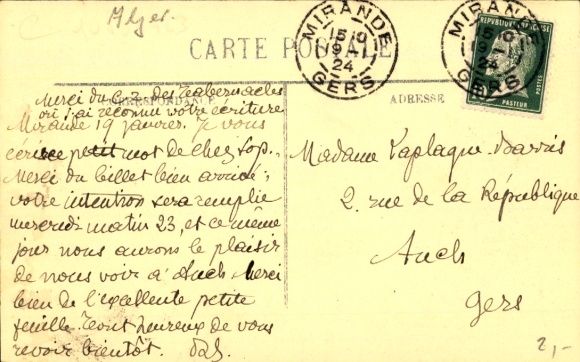 Alger.
CARTE POSTALE
MIRANDE
15
19-1
24
GERS
MIRANDE
15
19-1
24
GERS
REPUBLIQUE FRANÇAISE
POSTES
PASTEUR
CORRESPONDANCE
ADRESSE
Merci du des Tabernacles
où j'ai reconnu votre écriture
Mirande 19 janvier. Je vous
écris ce petit mot de chez
Merci du billet bien arrivé;
votre intention sera remplie
mercredi matin 23, et ce même
jour nous aurons le plaisir
de nous voir à Auch. Merci
bien de l'excellente petite
feuille. Tout heureux de vous
revoir bientôt.
Madame Laplagne-Barris
2. rue de la République
Auch
Gers
2,-